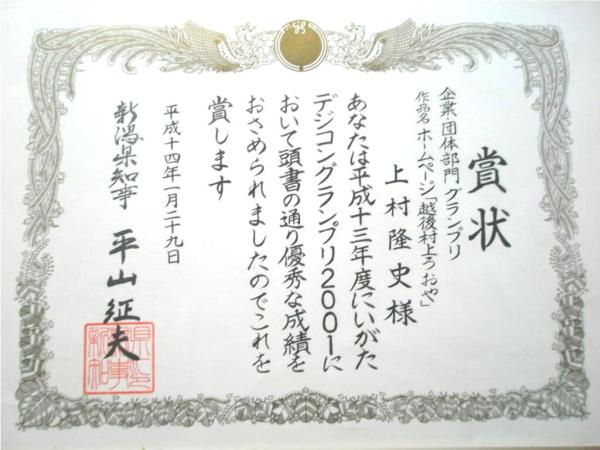 賞状
企業団体部門グランプリ
作品名 ホームページ「越後村上うおや」
上村隆史様
あなたは平成十三年度にいがた
デジコングランプリ2001に
おいて頭書の通り優秀な成績を
おさめられましたのでこれを
賞します
平成十四年一月二十九日
新潟県知事 平山征夫